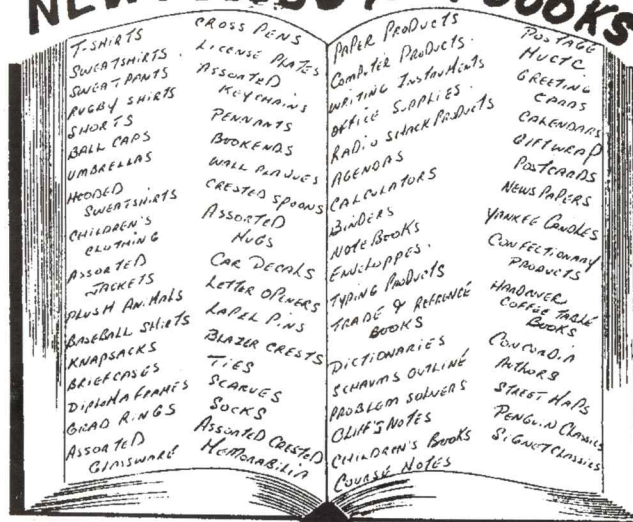 NEW
BOOKS
T-SHIRTS
SWEATSHIRTS .
SWEATPANTS
RUGBY SHIRTS
SHORTS
BALL CAPS
UMBRELLAS
HOODED
SWEATSHIRTS
CHILDREN'S
CLOTHING
ASSORTED
JACKETS
PLUSH ANIMALS
BASEBALL SHIRTS
KNAPSACKS
BRIEFCASES
DIPLOMA FRAMES
GRAD RINGS
ASSORTED
GLASSWARE
CROSS PENS
LICENSE PLATES
ASSORTED
KEYCHAINS
PENNANTS
BOOKENDS
WALL PLAQUES
CRESTED SPOONS
ASSORTED
MUGS
CAR DECALS
LETTER OPENERS
LAPEL PINS
BLAZER CRESTS
TIES
SCARVES
SOCKS
ASSORTED CRESTED
MEMORABILIA
PAPER PRODUCTS
COMPUTER PRODUCTS.
WRITING INSTRUMENTS
OFFICE SUPPLIES .
RADIO SHACK PRODUCTS
AGENDAS
CALCULATORS
BINDERS
NOTEBOOKS
ENVELOPPES .
TYPING PRODUCTS
TRADE & REFERENCE
BOOKS
DICTIONARIES
SCHAUM'S OUTLINE
PROBLEM SOLVERS
CLIFF'S NOTES
CHILDREN'S BOOKS
COURSE NOTES
POSTAGE
MUCTC
GREETING
CARDS
CALENDARS
GIFTWRAP
POSTCARDS
NEWSPAPERS
YANKEE CANDLES
CONFECTIONARY
PRODUCTS
HARDCOVER
COFFEE TABLE
BOOKS
CONCORDIA
AUTHORS
STREET MAPS
PENGUIN CLASSICS
SIGNET CLASSICS